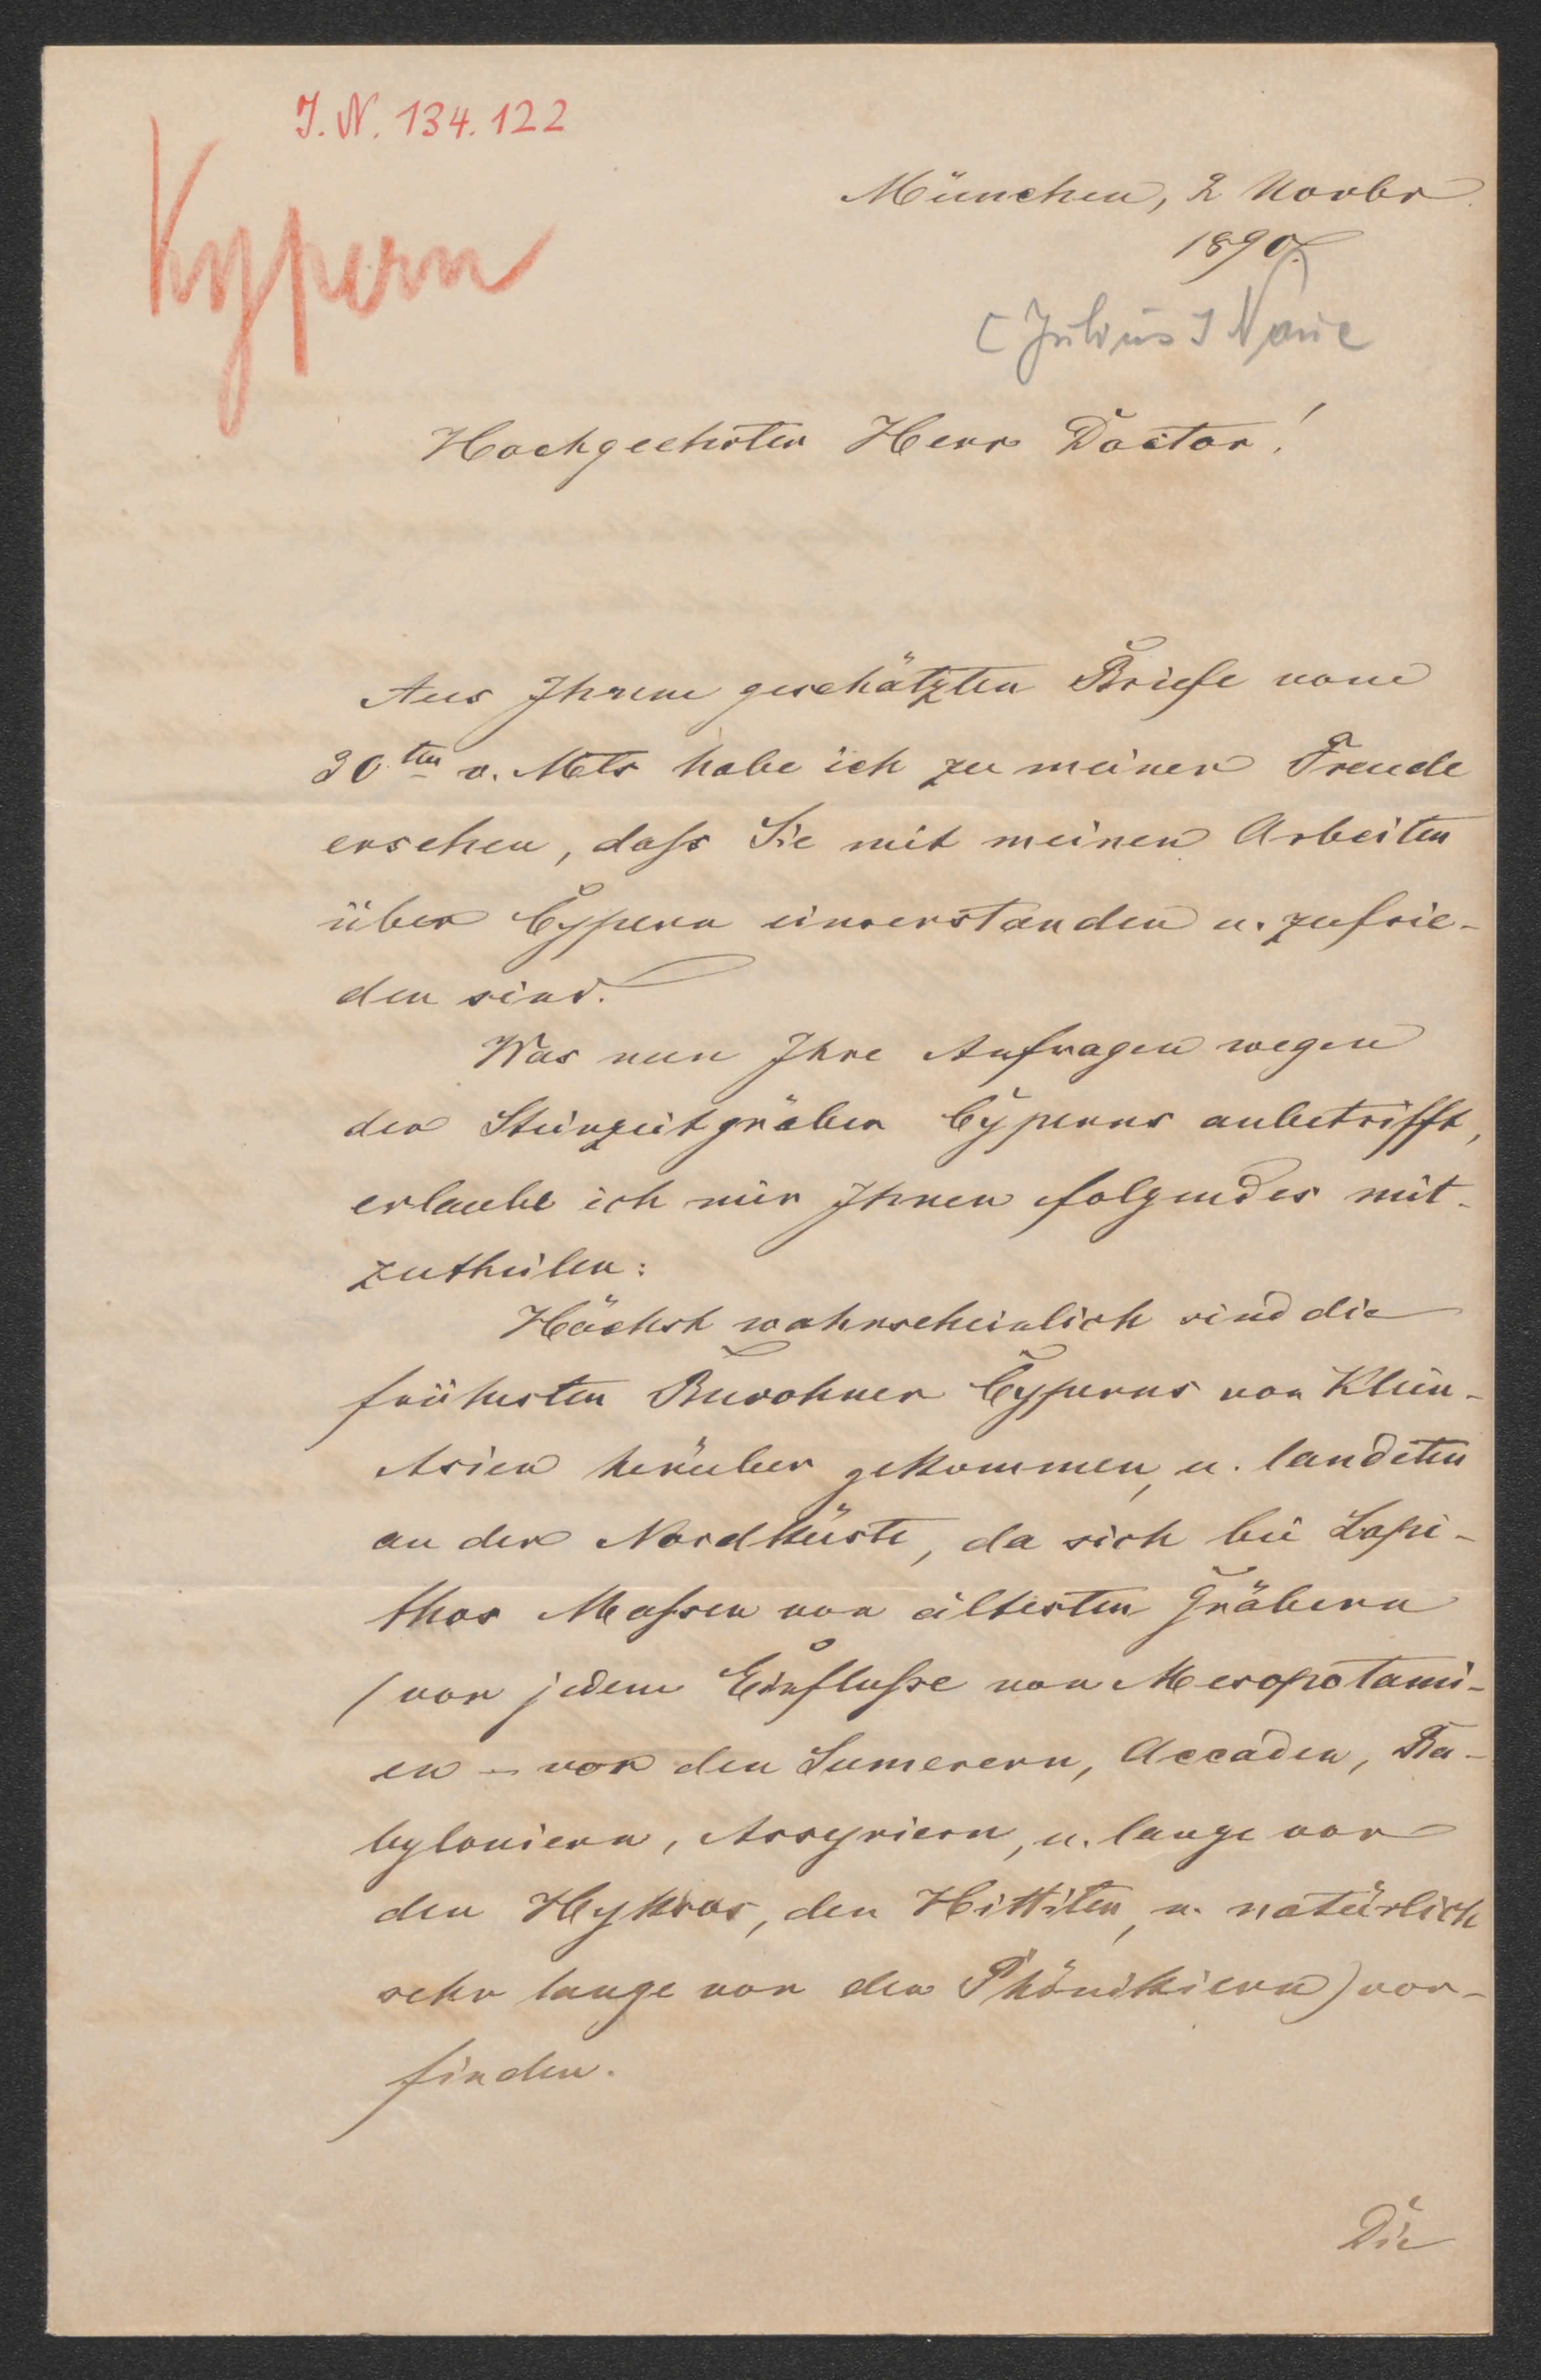 J. N. 134.122
Kypern
München, 2 Novbr.
1890.
[Julius] Naue
Hochgeehrter Herr Doctor!
Aus Ihrem geschätzten Briefe vom
30ten v. Mts habe ich zu meiner Freude
ersehen, dass Sie mit meinen Arbeiten
über Cypern einverstanden u. zufrie-
den sind.
Was nun Ihre Anfragen wegen
der Steinzeitgräber Cyperns anbetrifft,
erlaube ich mir Ihnen folgendes mit-
zutheilen:
Höchst wahrscheinlich sind die
frühesten Bewohner Cyperns von Klein-
Asien herüber gekommen, u. landeten
an der Nordküste, da sich bei Lapi-
thos Massen von ältesten Gräbern
(vor jedem Einflusse von Mesopotami-
en – vor den Sumerern, Accaden, Ba-
byloniern, Assyriern, u. lange vor
den Hyksos, den Hittiten, u. natürlich
sehr lange vor den Phönikiern) vor-
finden.
Die